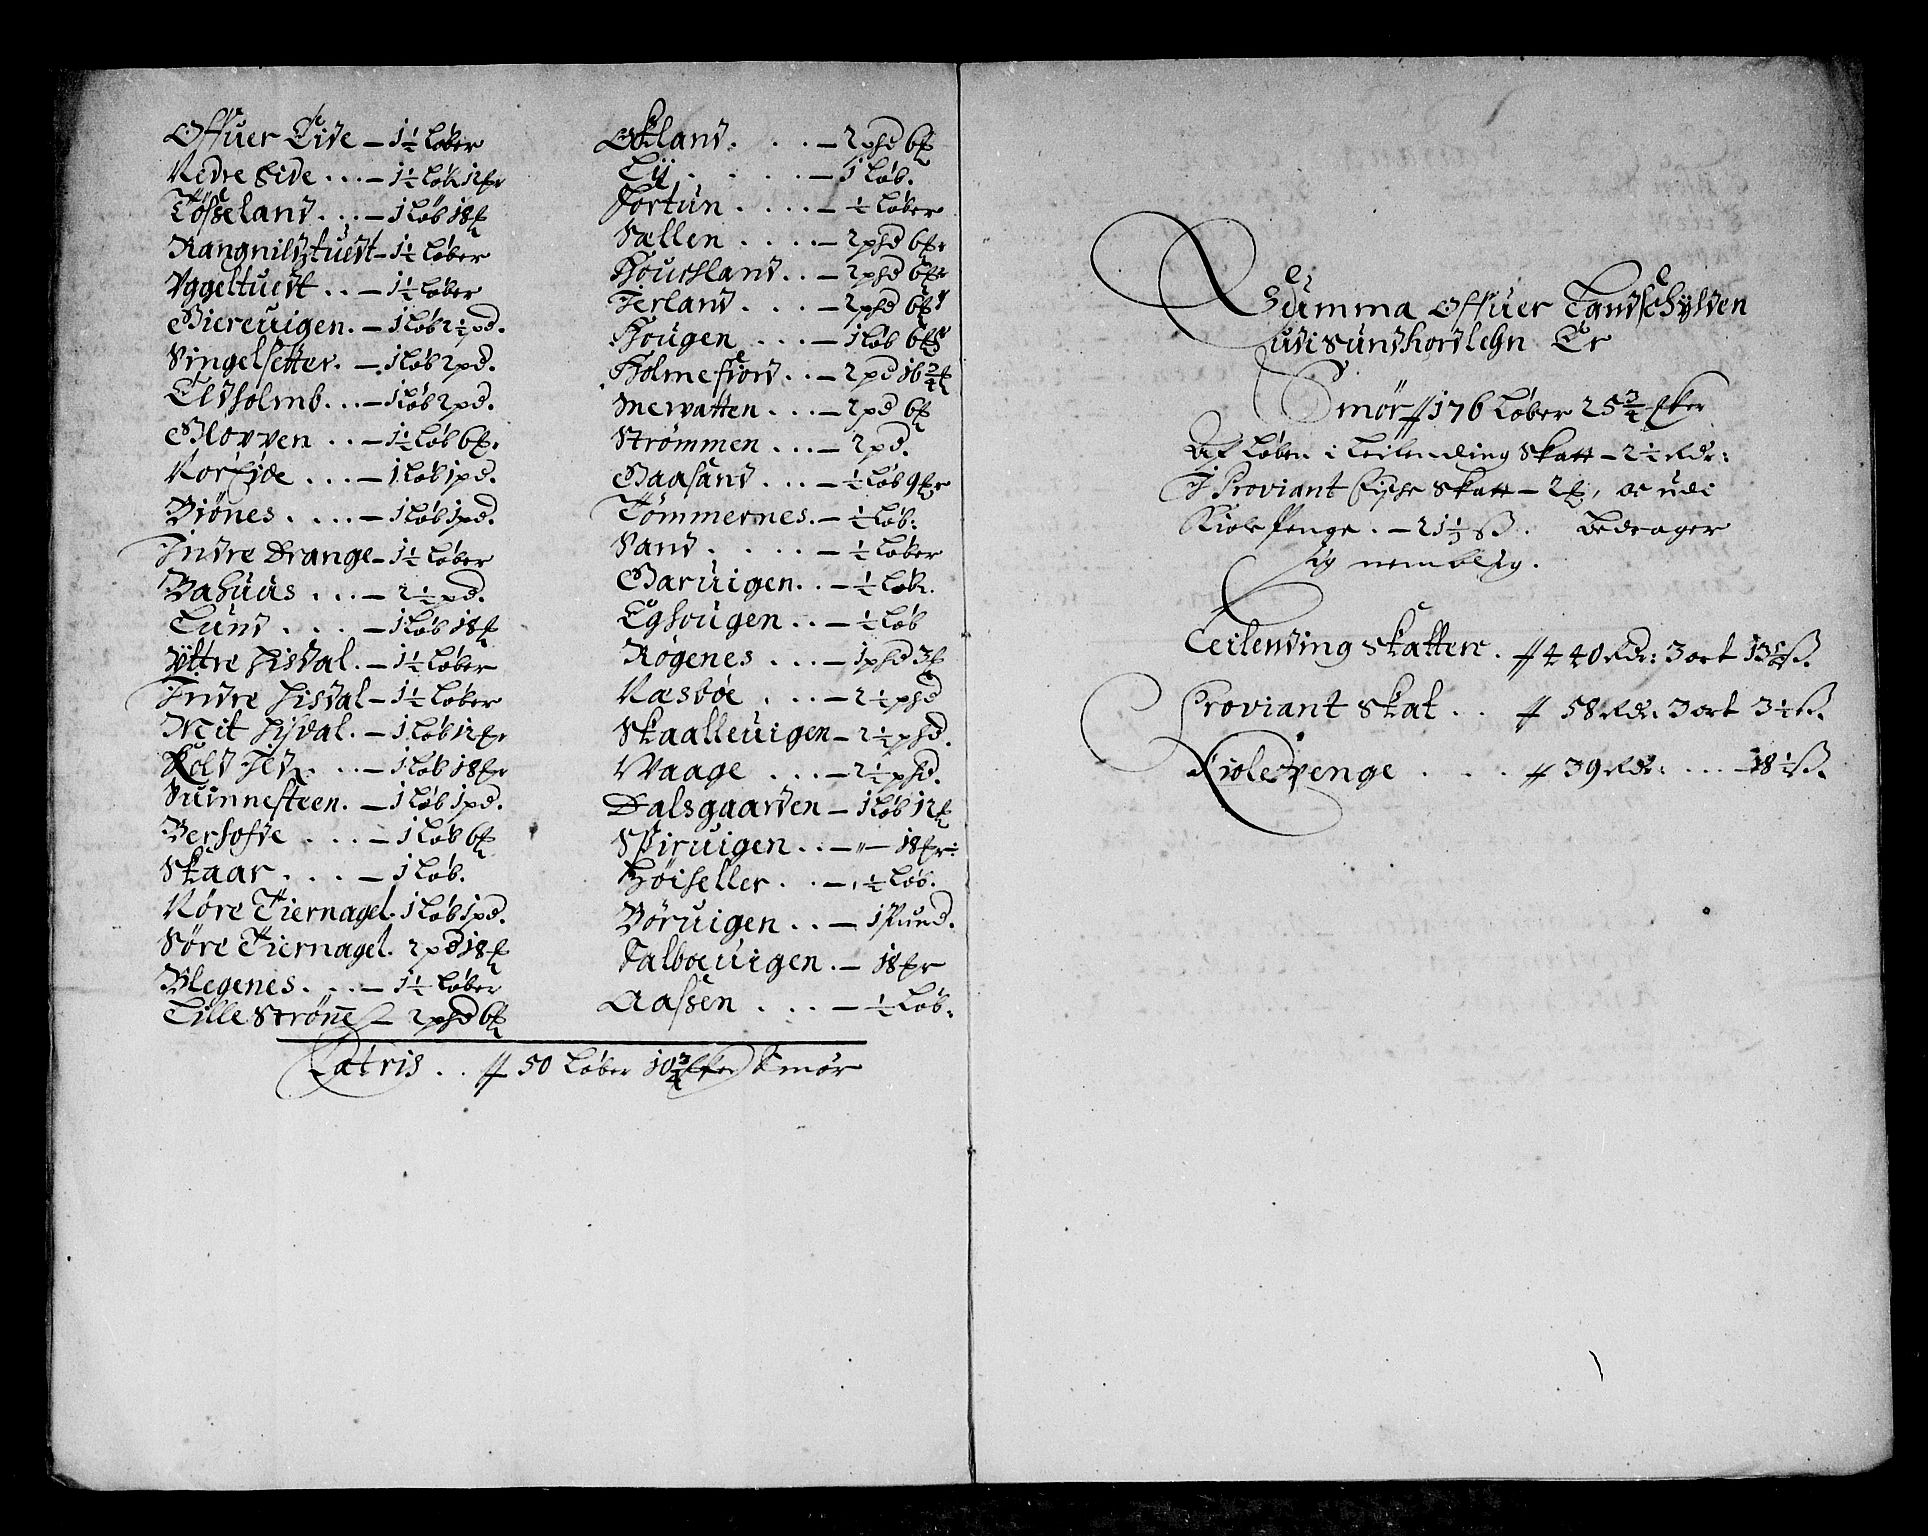 Offuer Eide – 1½ Løber
Nedre Eide . . . – 1½ Løb 12 fr
Tösseland . . . – 1 Løb 18 f
Rangnildztuedt – 1½ Løber
Yggeltuedt . . – 1½ Løber
Biereuigen . – 1 Løb 2½ pd.
Singelsetter . – 1 Løb 2 pd.
Eldholmb . . . – 1 Løb 2 pd.
Hoppen . . – 1½ Løb 6 f.
Noreide . . . – 1 Løb 1 pd.
Biönes . . . . – 1 Løb 1 pd.
Indre Drange – 1½ Løber
Bahuus . . . – 2½ pd.
Lund . . . . – 1 Løb 18 f
Yttre Hisdal . – 1½ Løber
Indre Hisdal – 1½ Løber
Mit Hisdal . – 1 Løb 12 fr
– 1 Løb 18 fr
Suinnesteen . – 1 Løb 1 pd.
Berhofde . . . – 1 Løb 6 f
Skaar . . . – 1 Løb.
Nøre Tiernagel . 1 Løb 1 pd.
Søre Tiernagel . 2 pd 18 f
Blegenes . . . – 1½ Løber
Lille Strøm – 2 phd 6 f
Økland . . . – 2 phd 6 f
Lij . . . . – 1 Løb.
Tortun . . . . – ½ Løber
Sællen . . . . – 2 phd 6 fr
Houchland . . – 2 phd 6 fr
Ierland . . . – 2 phd 6 f
Hougen . . . – 1 Løb 6 fr
Holmefiord . . – 2 pd 16¾ f
Mewatten . . . – 2 pd 6 f
Strömmen . . . – 2 pd.
Baasand . . . – ½ Løb 9 fr
Tömmernes . – ½ Løb:
Sand . . . . – ½ Løber
Baruigen . . – ½ Løb.
Eghougen . . – ½ Løb
Røgenes . . . – 1 phd 3 f
Næsbøe . . . – 2½ phd
Skaalleuigen – 2½ phd.
Waage . . . – 2½ phd.
Dalsgaarden – 1 Løb 12 f
Spiruigen . . – „ – 18 fr:
Höiseller . . – ½ Løb.
Böruigen . . – 1 Pund.
Talbouigen . – 18 fr
Aassen . . . – ½ Løb.
Latris . . # 50 Løber 10¾ fker Smör
Summa Offuer Landschylden
udi Sundhordlehn Er
Smör # 176 Løber 25¾ fker
Af Løben i Leilending Skatt – 2½ Rdr:
I Proviant Skatt – 2 f, oc udi
Kiole Penge . – 21⅓ ß. Bedrager
sig nemblig.
Leilending Skatten . # 440 Rdr: 3 ort ß.
Proviant Skat . . # 58 Rdr. 3 ort 3½ ß.
Kiolepenge . . . . # 39 Rdr: . . . – 18½ ß.